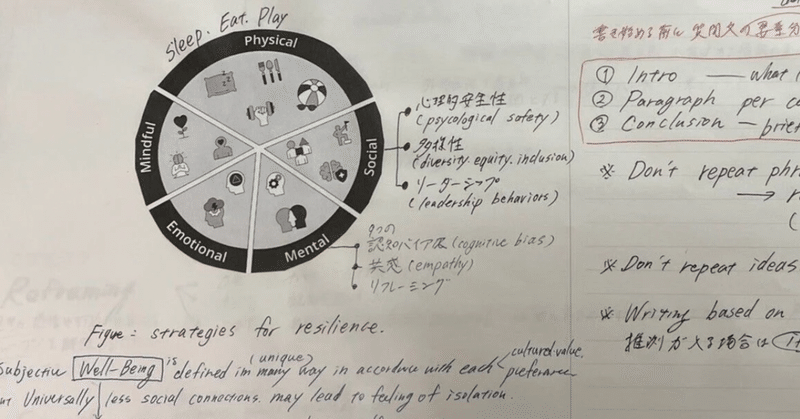 Sleep. Eat. Play
Physical
Mindful
Social
Emotional
Mental
心理的安全性
(psycological safety)
多様性
(diversity.equity.inclusion)
リーダーシップ
(leadership behaviors)
9つの
認知バイアス (cognitive bias)
共感 (empathy)
リフレーミング
Figure: strategies for resilience.
Subjective Well-Being is defined in many (unique) way in accordance with each cultural value, preference
Universally less social connections. may lead to feeling of isolation.
Reframing
書き始める前に 質問文の要素分
① Intro — what
② Paragraph per
③ Conclusion — brief
※ Don't repeat
→
※ Don't repeat ideas
※ Writing based on
推測が入る場合は